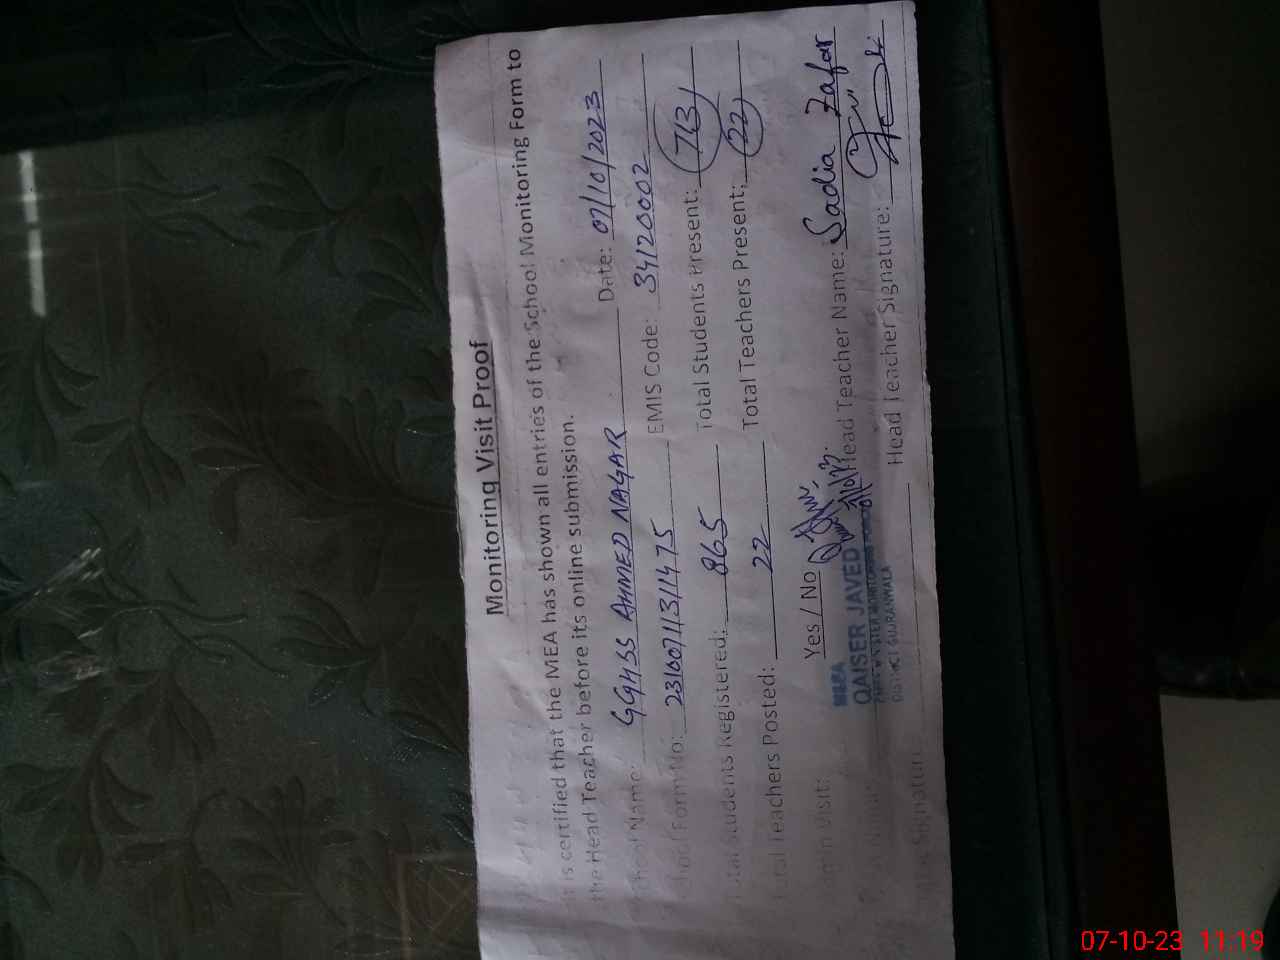 Monitoring Visit Proof
It is certified that the MEA has shown all entries of the School Monitoring Form to
the Head Teacher before its online submission.
School Name: GGHSS AHMED NAGAR Date: 07/10/2023
School Form No: 23100711311475 EMIS Code: 34120002
Total Students Registered: 865 Total Students Present: 713
Total Teachers Posted: 22 Total Teachers Present: 22
Visit: Yes / No
MEA
QAISER JAVED Head Teacher Name: Sadia Zafar
DISTRICT GUJRANWALA
Signature Head Teacher Signature:
07-10-23 11:19